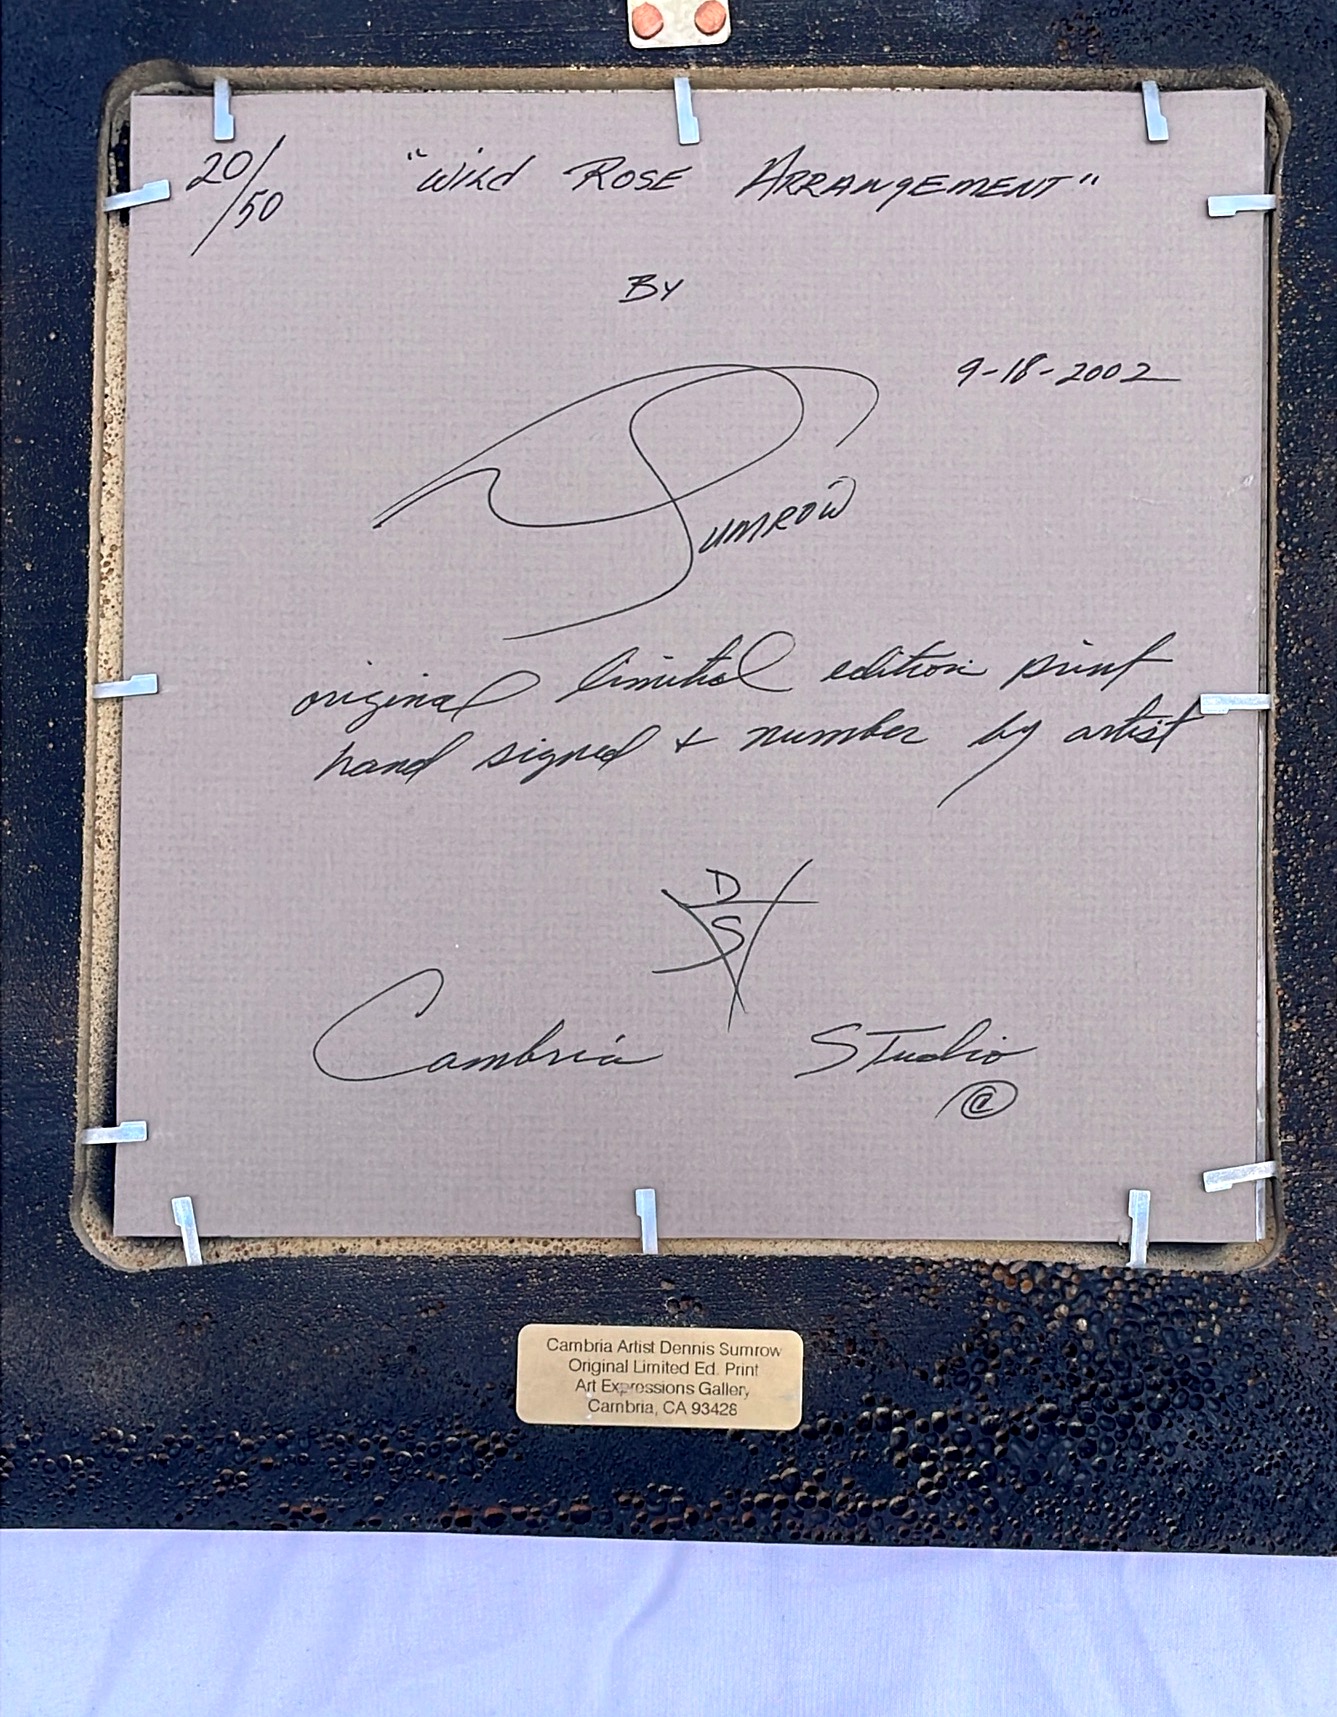 20/50 "Wild Rose Arrangement"
By
9-18-2002
Sumrow
original limited edition print
hand signed & number by artist
D
S
Cambria Studio
@
Cambria Artist Dennis Sumrow
Original Limited Ed. Print
Art Expressions Gallery
Cambria, CA 93428